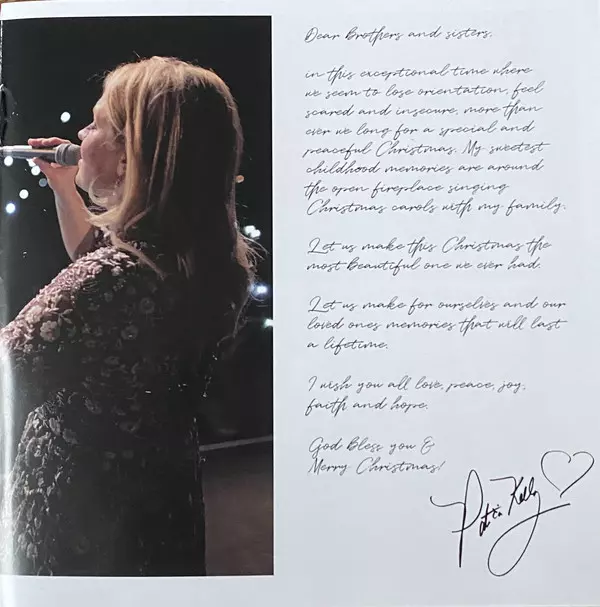 Dear Brothers and sisters,
in this exceptional time where
we seem to lose orientation, feel
scared and insecure, more than
ever we long for a special and
peaceful Christmas. My sweetest
childhood memories are around
the open fireplace singing
Christmas carols with my family.
Let us make this Christmas the
most beautiful one we ever had.
Let us make for ourselves and our
loved ones memories that will last
a lifetime.
I wish you all love, peace, joy,
faith and hope.
God bless you &
Merry Christmas!
Patricia Kelly